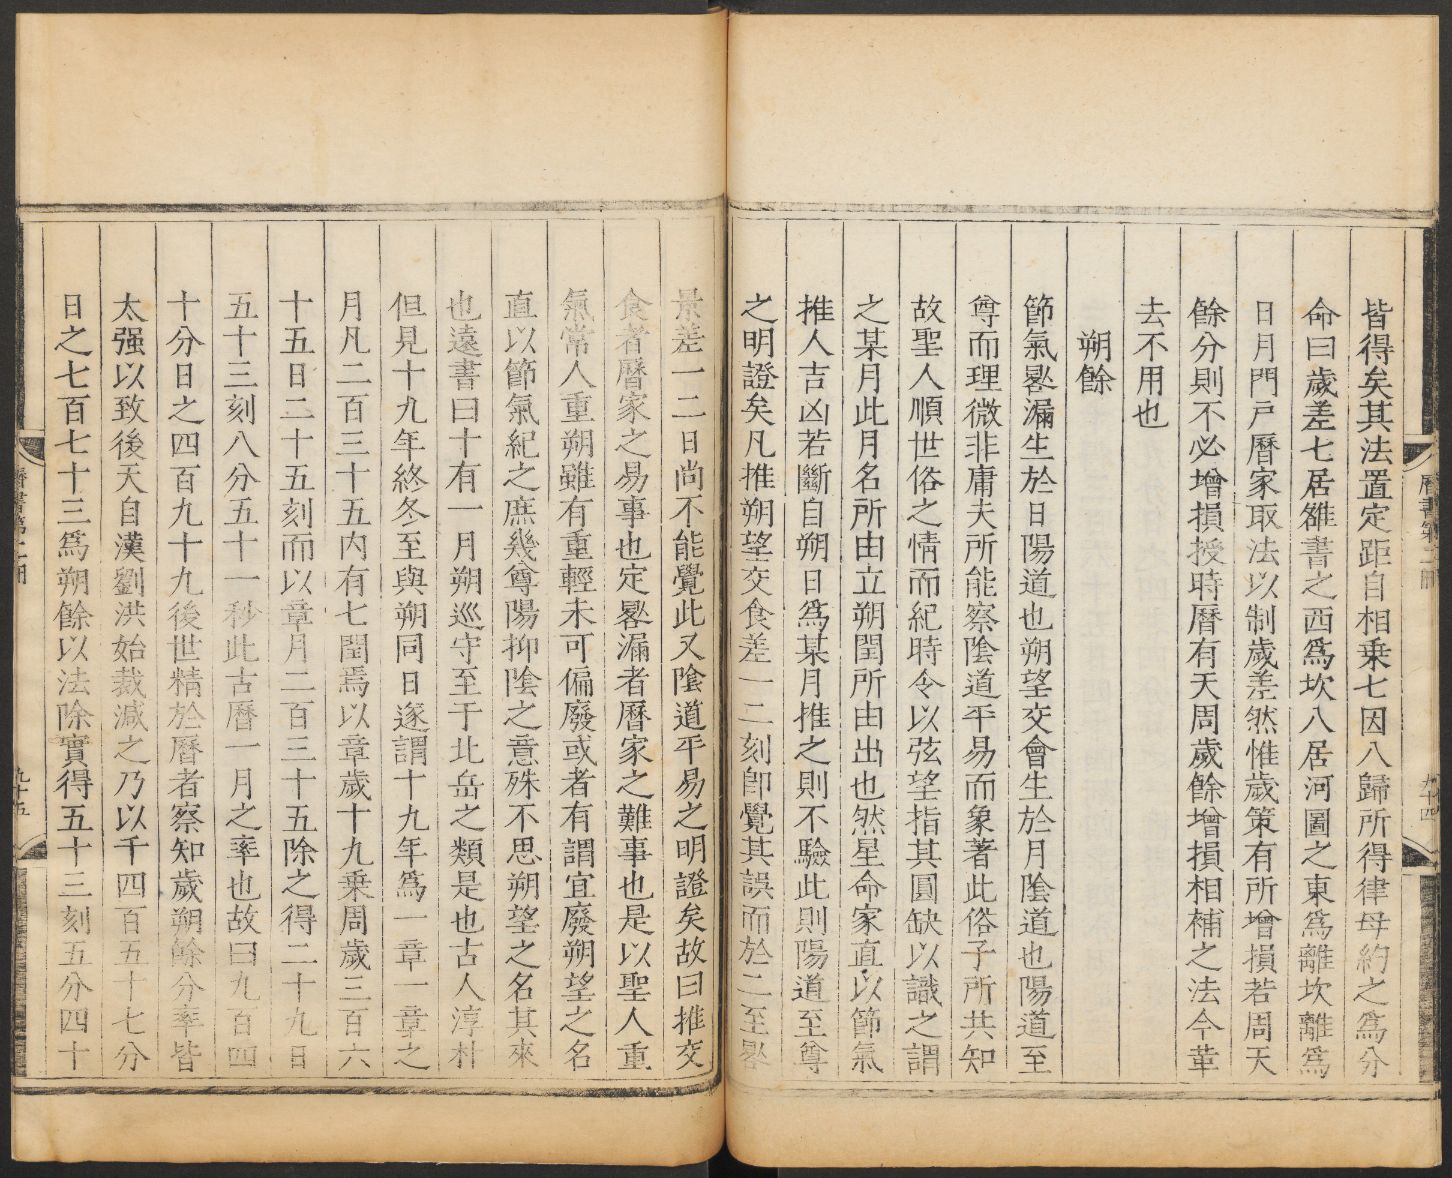 皆得矣其法置定距自相乗七因八歸所得律母約之爲分
命曰歲差七居雒書之西爲坎八居河圖之東爲離坎離爲
日月門戸曆家取法以制歲差然惟歲策有所增損若周天
餘分則不必增損授時曆有天周歲餘增損相補之法今革
去不用也
朔餘
節氣晷漏生於日陽道也朔望交會生於月陰道也陽道至
尊而理微非庸夫所能察陰道平易而象著此俗子所共知
故聖人順世俗之情而紀時令以弦望指其圓缺以識之謂
之某月此月名所由立朔閏所由出也然星命家直以節氣
推人吉凶若斷自朔日爲某月推之則不驗此則陽道至尊
之明證矣凡推朔望交食差一二刻卽覺其誤而於二至晷
景差一二日尚不能覺此又陰道平易之明證矣故曰推交
食者曆家之易事也定晷漏者曆家之難事也是以聖人重
氣常人重朔雖有重輕未可偏廢或者有謂宜廢朔望之名
直以節氣紀之庶幾尊陽抑陰之意殊不思朔望之名其來
也遠書曰十有一月朔巡守至于北岳之類是也古人淳朴
但見十九年終冬至與朔同日遂謂十九年爲一章一章之
月凡二百三十五內有七閏焉以章歲十九乗周歲三百六
十五日二十五刻而以章月二百三十五除之得二十九日
五十三刻八分五十一秒此古曆一月之率也故曰九百四
十分日之四百九十九後世精於曆者察知歲朔餘分率皆
太强以致後天自漢劉洪始裁減之乃以千四百五十七分
日之七百七十三爲朔餘以法除實得五十三刻五分四十
曆書第二冊
九十四
曆書第二冊
九十五